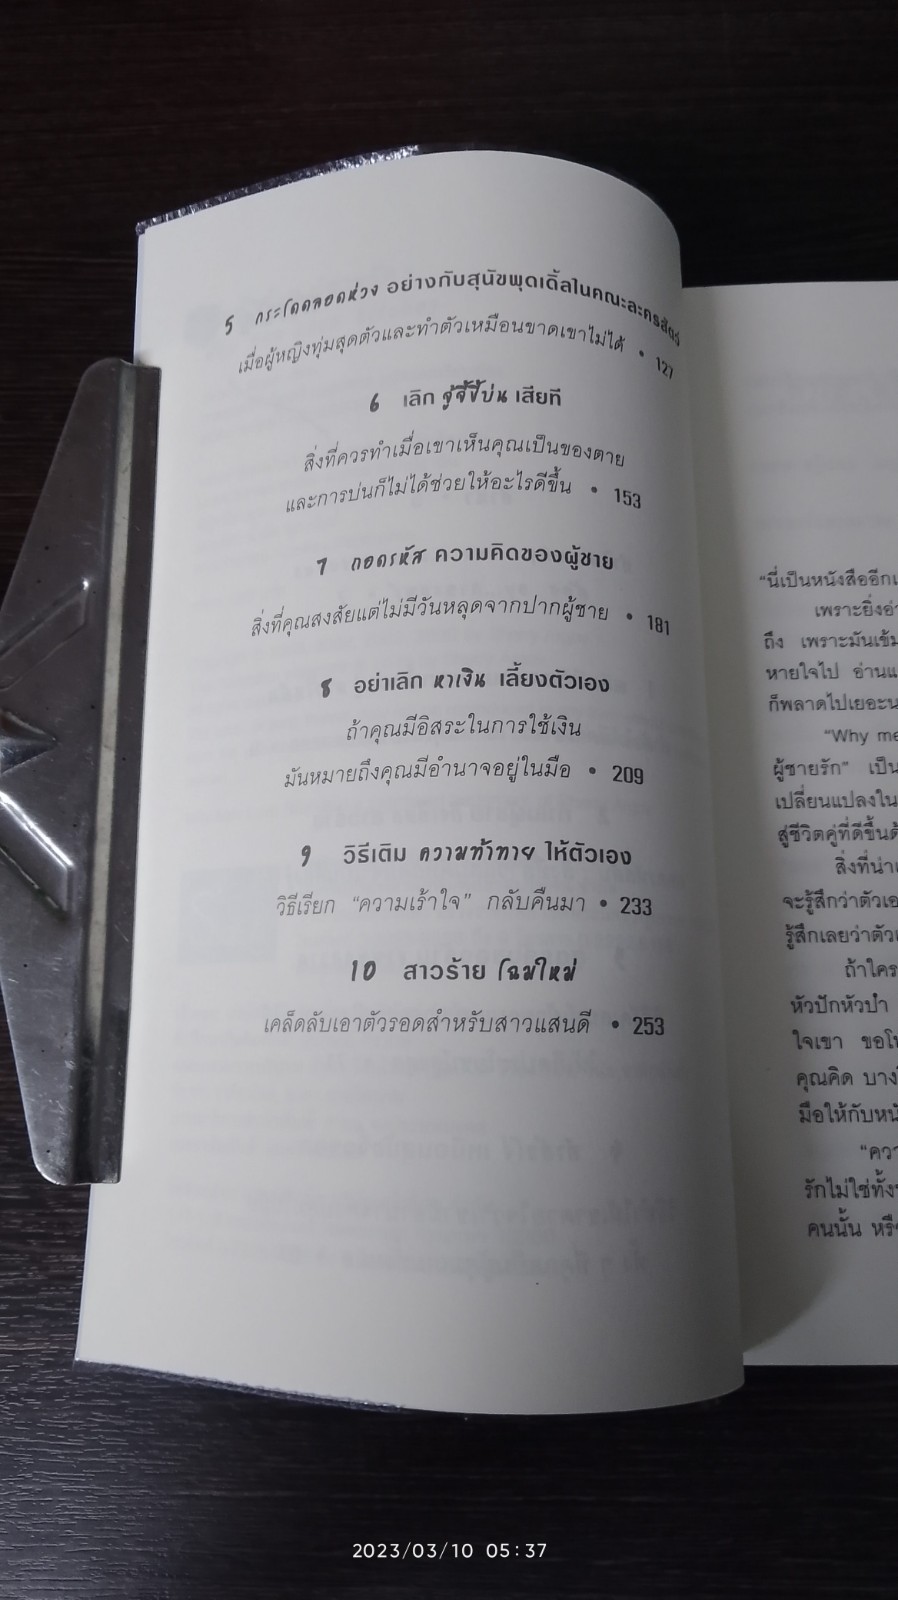 5 กระโดดลอดห่วง อย่างกับสุนัขพุดเดิ้ลในคณะละครสัตว์
เมื่อผู้หญิงทุ่มสุดตัวและทำตัวเหมือนขาดเขาไม่ได้ • 127
6 เลิก จู้จี้ขี้บ่น เสียที
สิ่งที่ควรทำเมื่อเขาเห็นคุณเป็นของตาย
และการบ่นก็ไม่ได้ช่วยให้อะไรดีขึ้น • 153
7 ถอดรหัส ความคิดของผู้ชาย
สิ่งที่คุณสงสัยแต่ไม่มีวันหลุดจากปากผู้ชาย • 181
8 อย่าเลิก หาเงิน เลี้ยงตัวเอง
ถ้าคุณมีอิสระในการใช้เงิน
มันหมายถึงคุณมีอำนาจอยู่ในมือ • 209
9 วิธีเติม ความท้าทาย ให้ตัวเอง
วิธีเรียก “ความเร้าใจ” กลับคืนมา • 233
10 สาวร้าย โฉมใหม่
เคล็ดลับเอาตัวรอดสำหรับสาวแสนดี • 253
“นี่เป็นหนังสืออีก
เพราะยิ่ง
ถึง เพราะมัน
หายใจไป อ่าน
ก็พลาดไปเยอะ
“Why
ผู้ชายรัก” เป็น
เปลี่ยนแปลงใน
สู่ชีวิตคู่ที่ดีขึ้น
สิ่งที่
จะรู้สึกว่าตัว
รู้สึกเลยว่าตัว
ถ้าใคร
หัวปักหัวปำ
ใจเขา
คุณคิด
มือให้กับ
รักไม่ใช่
คนนั้น
2023/03/10 05:37